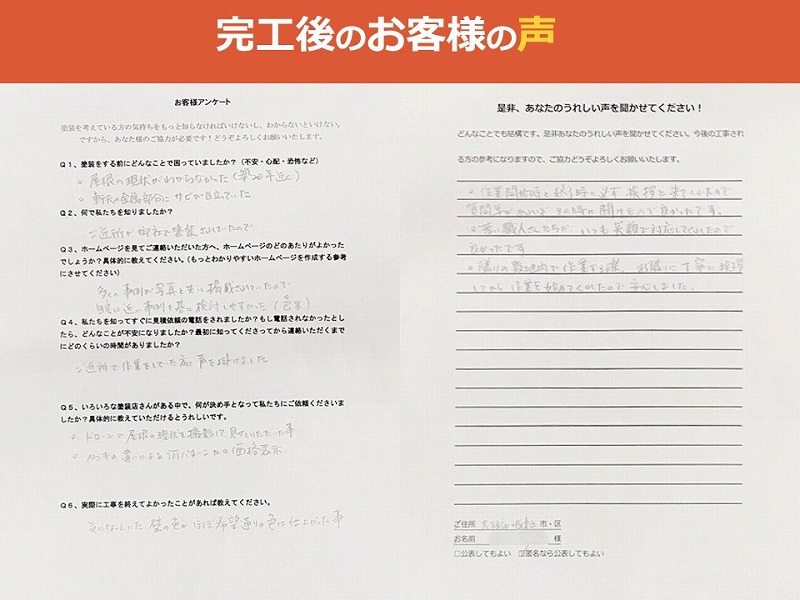 完工後のお客様の声
お客様アンケート
塗装を考えている方の気持ちをもっと知らなければいけないし、わからないといけない。
ですから、あなた様のご協力が必要です！どうぞよろしくお願いいたします。
Q1、塗装をする前にどんなことで困っていましたか？（不安・心配・恐怖など）
○ 屋根の現状がわからなかった（築20年近く）
○ 軒天の金属部分にサビが目立っていた
Q2、何で私たちを知りましたか？
ご近所が御社で塗装されていたので
Q3、ホームページを見てご連絡いただいた方へ、ホームページのどのあたりがよかった
でしょうか？具体的に教えてください。（もっとわかりやすいホームページを作成する参考
にさせてください）
多くの事例が写真と共に掲載されていたので
自宅に近い事例を基に検討しやすかった（色等）
Q4、私たちを知ってすぐに見積依頼の電話をされましたか？もし電話されなかったとし
たら、どんなことが不安になりましたか？最初に知ってくださってから連絡いただくまで
にどのくらいの時間がありましたか？
ご近所で作業をしていた方に声を掛けました
Q5、いろいろな塗装店さんがある中で、何が決め手となって私たちにご依頼くださいま
したか？具体的に教えていただけるとうれしいです。
○ ドローンで屋根の現状を撮影して見せていただいた事
○ ペンキの違いによる何パターンかの価格表示
Q6、実際に工事を終えてよかったことがあれば教えてください。
気になっていた壁の色がほぼ希望通りの色に仕上がった事
是非、あなたのうれしい声を聞かせてください！
どんなことでも結構です。是非あなたのうれしい声を聞かせてください。今後の工事され
る方の参考になりますので、ご協力どうぞよろしくお願いいたします。
○ 作業開始時と終了時に必ず挨拶に来てくれたので
質問等があればその時に聞けたので良かったです。
○ 若い職人さんたちがいつも笑顔で対応してくれたので
良かったです
○ 隣りの敷地内で作業する際、お隣に丁寧に挨拶
してから作業を始めてくれたので安心しました。
ご住所 市・区
お名前 様
□公表してもよい ☑匿名なら公表してもよい